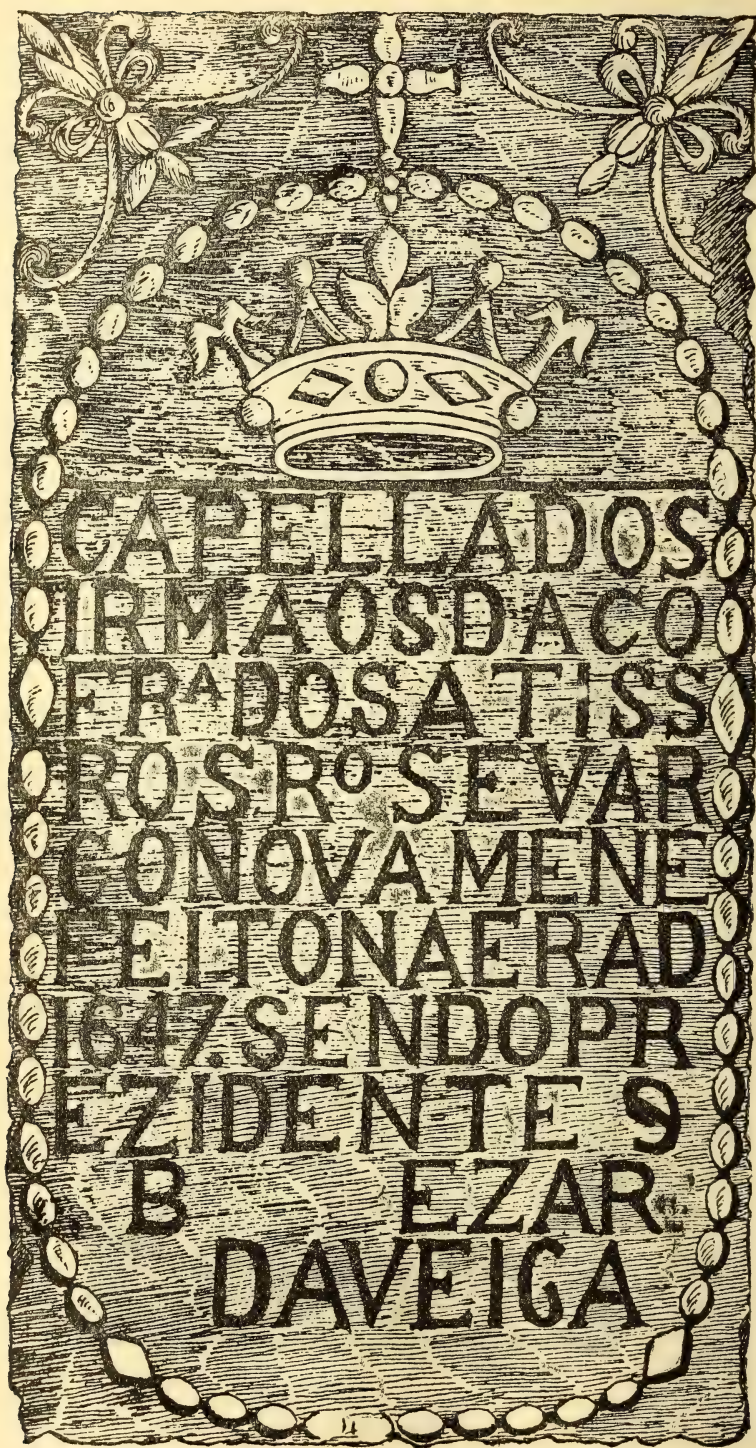 CAPELLADOS
IRMAOSDACO
FRᴬDOSATISS
ROSRºSEVAR
CONOVAMENE
FEITONAERAD
1647.SENDOPR
EZIDENTE S
B EZAR
DAVEIGA